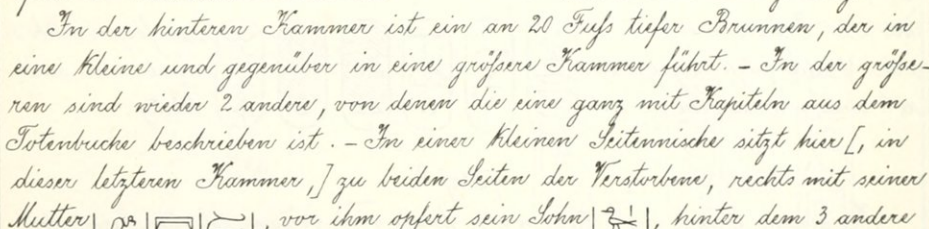 In der hinteren Kammer ist ein an 20 Fuſs tiefer Brunnen, der in
eine kleine und gegenüber in eine gröſsere Kammer führt. – In der gröſse-
ren sind wieder 2 andere, von denen die eine ganz mit Kapiteln aus dem
Totenbuche beschrieben ist. – In einer kleinen Seitennische sitzt hier [, in
dieser letzteren Kammer,] zu beiden Seiten der Verstorbene, rechts mit seiner
Mutter | | | |, vor ihm opfert sein Sohn | |, hinter dem 3 andere